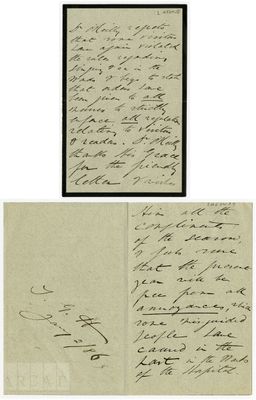 Dr Reilly regrets
that some visitors
have again violated
the rules regarding
in the
Wards & begs to state
that orders have
been given to all
nurses to strictly
enforce all regulations
relating to Visitors
& readers. Dr Reilly
thanks His Grace
for the friendly
letter & wishes
Him all the
compliments
of the season,
& feels sure
that the present
year will be
free from all
annoyances, which
some misguided
people have
caused in the
past in the Wards
of the Hospital